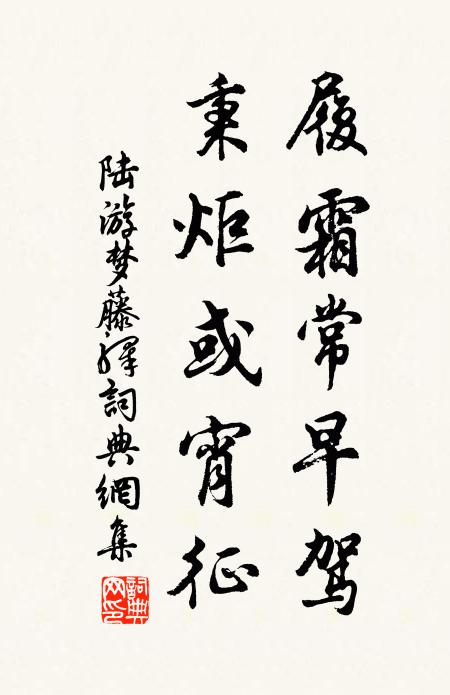 履霜常早駕
秉炬或宵征
陆游梦藤驛詞典網集
詞典網印